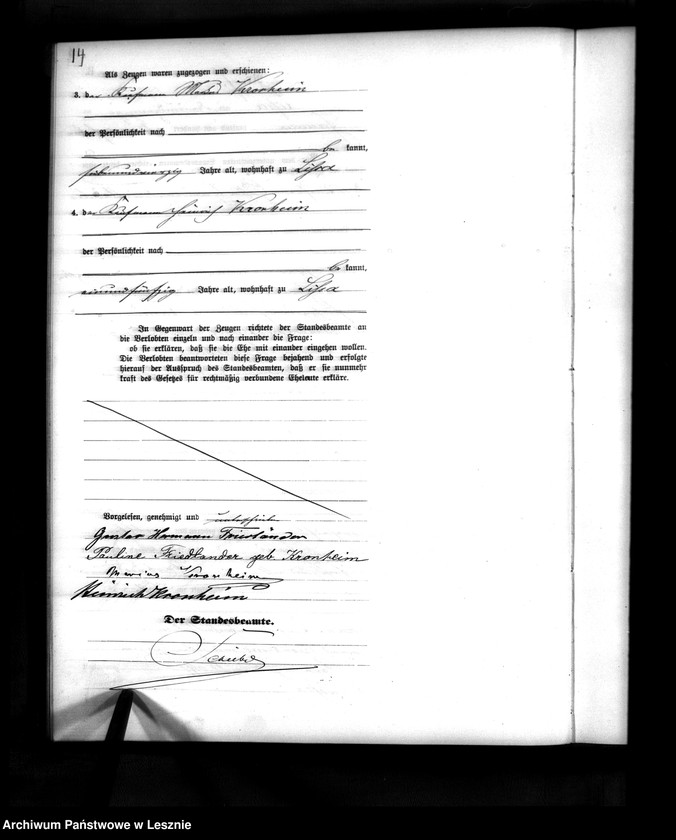 14
Als Zeugen waren zugezogen und erschienen:
3. der Kaufmann Kronheim
der Persönlichkeit nach
be kannt,
siebenundvierzig Jahre alt, wohnhaft zu Lissa
4. der Kaufmann Heinrich Kronheim
der Persönlichkeit nach
be kannt,
einundfünfzig Jahre alt, wohnhaft zu Lissa
In Gegenwart der Zeugen richtete der Standesbeamte an
die Verlobten einzeln und nach einander die Frage:
ob sie erklären, daß sie die Ehe mit einander eingehen wollen.
Die Verlobten beantworteten diese Frage bejahend und erfolgte
hierauf der Ausspruch des Standesbeamten, daß er sie nunmehr
kraft des Gesetzes für rechtmäßig verbundene Eheleute erkläre.
Vorgelesen, genehmigt und unterschrieben
Gustav Hermann Friedländer
Pauline Friedländer geb. Kronheim
Kronheim
Heinrich Kronheim
Der Standesbeamte.
Archiwum Państwowe w Lesznie